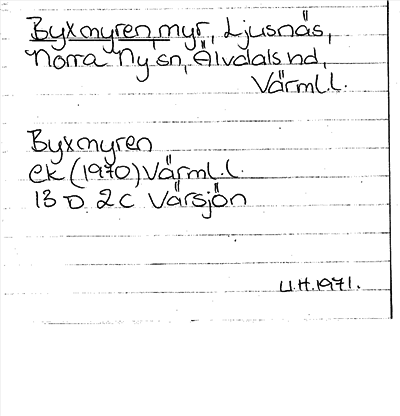 Byxmyren myr, Ljusnäs,
Norra Ny sn, Älvdals hd,
Värml.l.
Byxmyren
ek (1970) Värml.l.
13 D 2c Värsjön
U.H.1971.